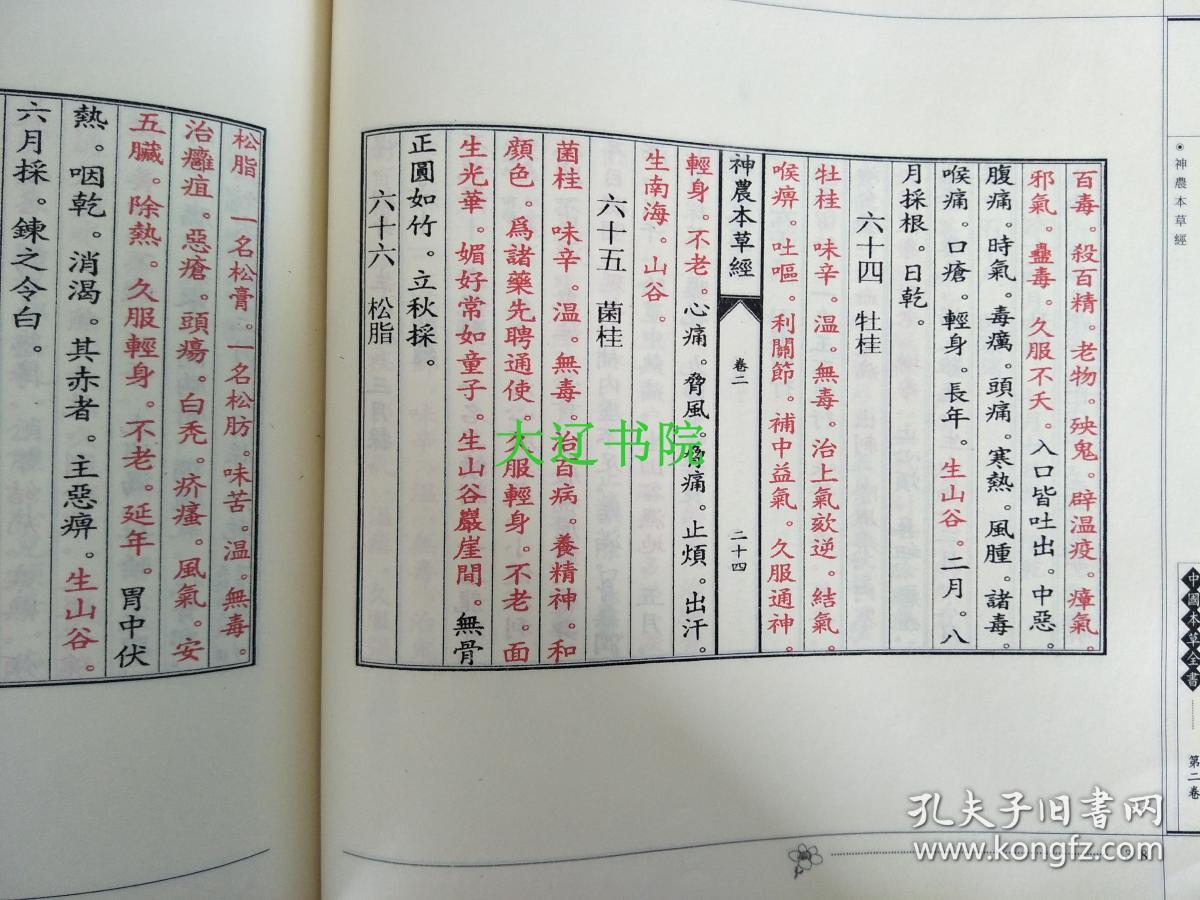 神農本草經
中國本草全書
第二卷
百毒。殺百精。老物。殃鬼。辟温疫。瘴氣。
邪氣。蠱毒。久服不夭。入口皆吐出。中惡。
腹痛。時氣。毒癘。頭痛。寒熱。風腫。諸毒。
喉痛。口瘡。輕身。長年。生山谷。二月。八
月採根。日乾。
六十四 牡桂
牡桂 味辛。温。無毒。治上氣欬逆。結氣。
喉痹。吐嘔。利關節。補中益氣。久服通神。
神農本草經 卷二 二十四
輕身。不老。心痛。脅風。脅痛。止煩。出汗。
生南海。山谷。
六十五 菌桂
菌桂 味辛。温。無毒。治百病。養精神。和
顔色。爲諸藥先聘通使。久服輕身。不老。面
生光華。媚好常如童子。生山谷巖崖間。無骨
正圓如竹。立秋採。
六十六 松脂
松脂 一名松膏。一名松肪。味苦。温。無毒。
治癰疽。惡瘡。頭瘍。白秃。疥瘙。風氣。安
五臟。除熱。久服輕身。不老。延年。胃中伏
熱。咽乾。消渴。其赤者。主惡痹。生山谷。
六月採。鍊之令白。
大辽书院
孔夫子旧书网
www.kongfz.com